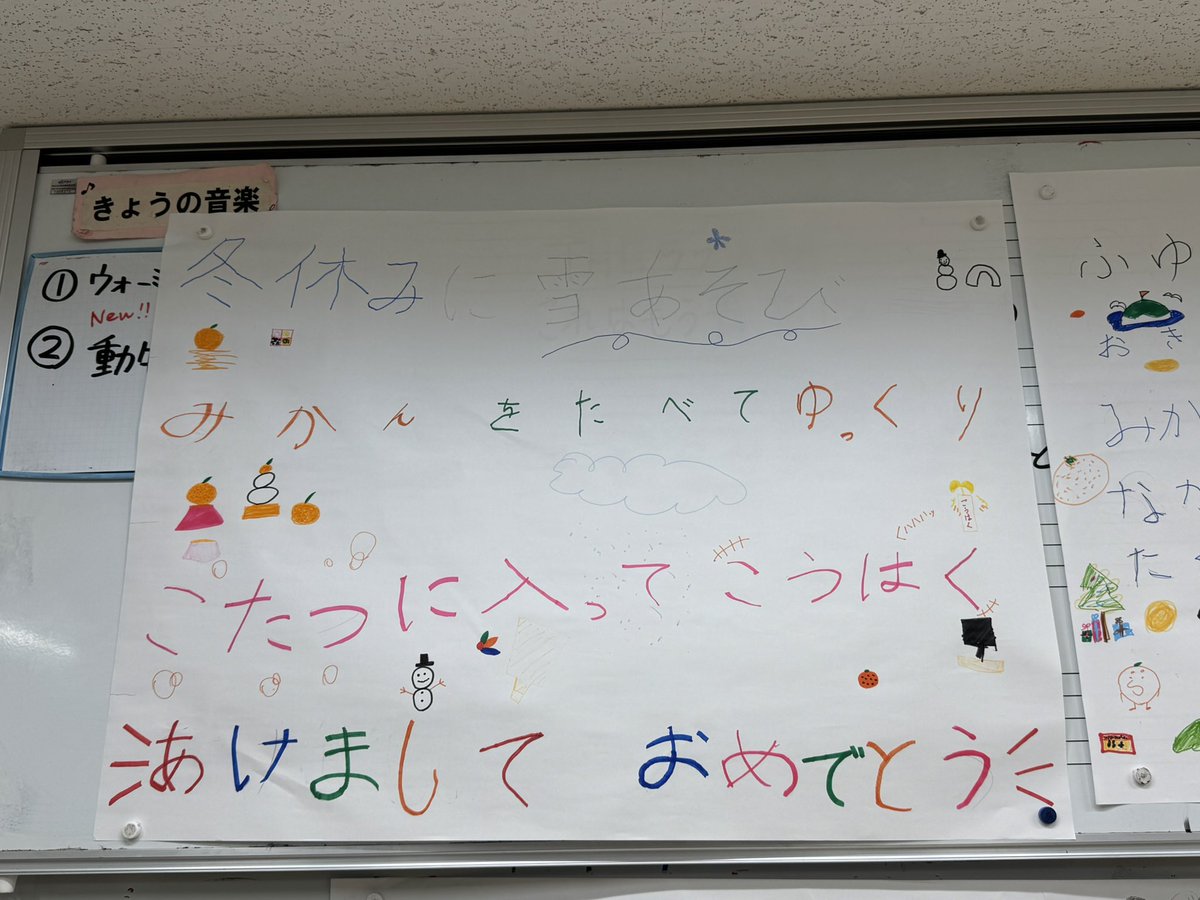 きょうの音楽
① ウォーミ
New!!
② 動
冬休みに雪あそび
みかんをたべてゆっくり
こたつに入ってこうはく
あけまして おめでとう
ふゆ
おき
みか
なか
た